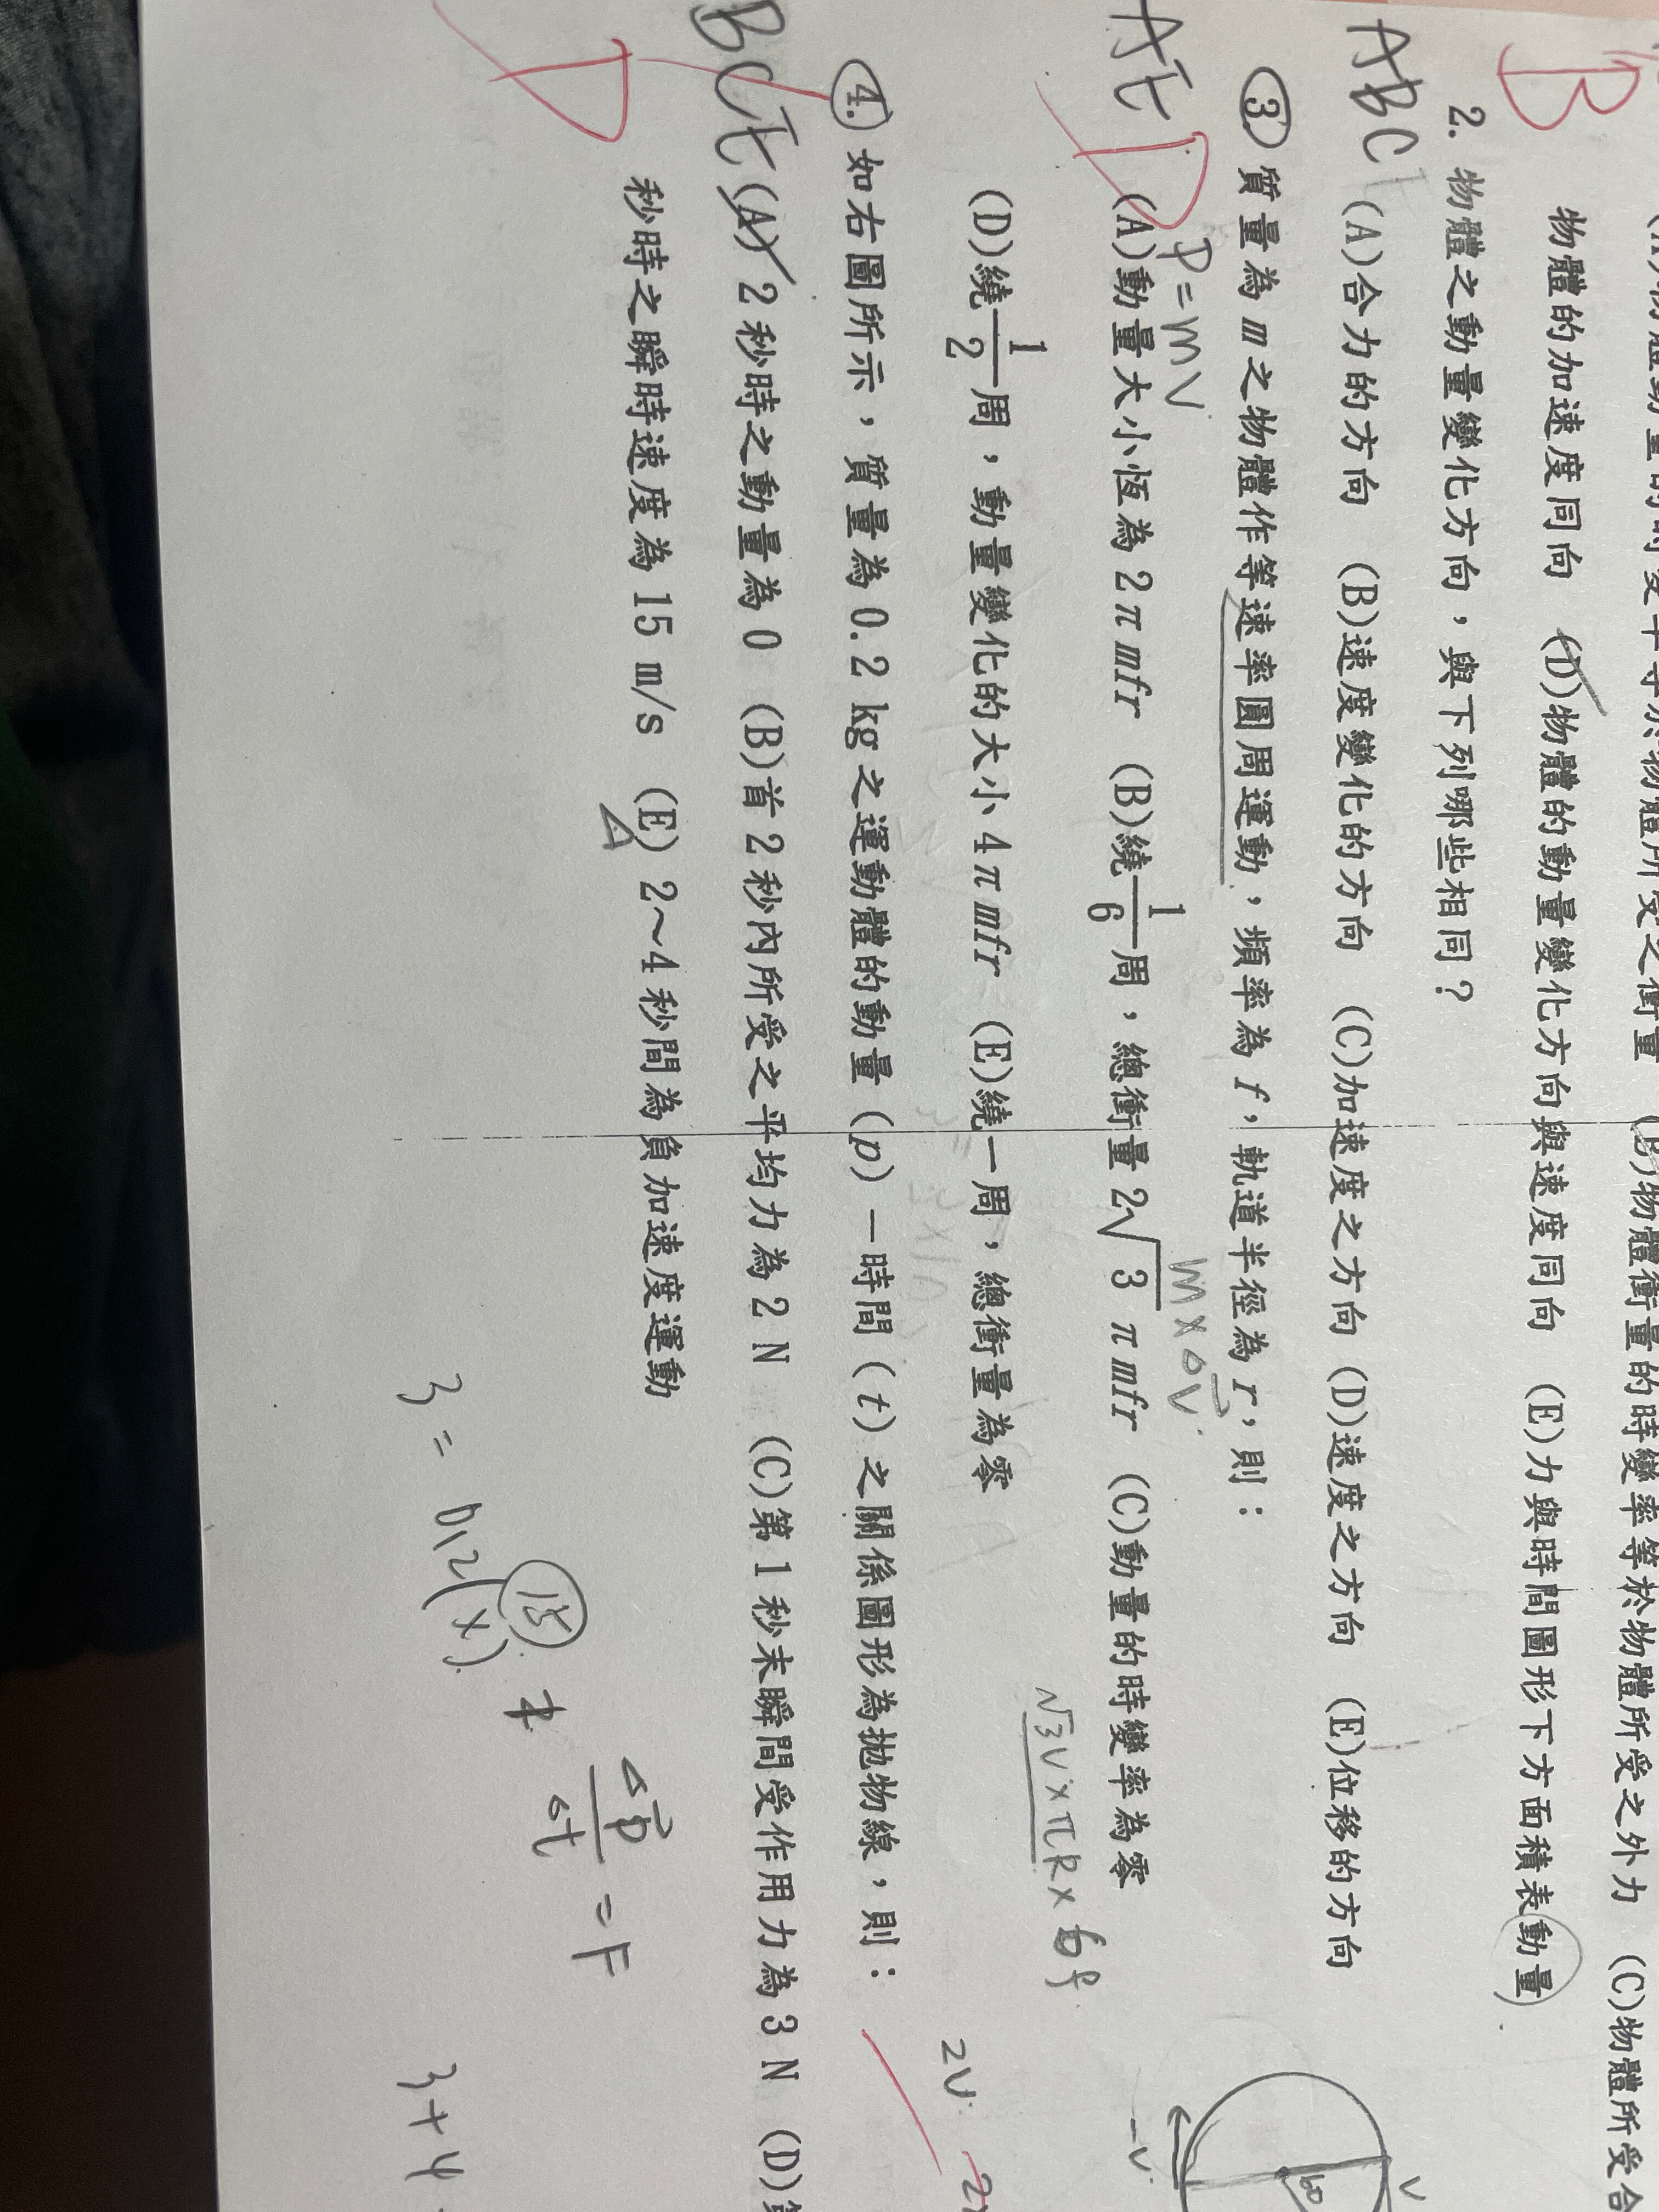 物體的加速度同向 (D)物體的動量變化方向與速度同向 (E)力與時間圖形下方面積表動量
B
2. 物體之動量變化方向，與下列哪些相同？
ABC (A)合力的方向 (B)速度變化的方向 (C)加速度之方向 (D)速度之方向 (E)位移的方向
3. 質量為 m 之物體作等速率圓周運動，頻率為 f，軌道半徑為 r，則：
P=mV
m×ΔV
AE (A)動量大小恆為 2πmfr (B)繞1/6周，總衝量 2√3 πmfr (C)動量的時變率為零
D
(D)繞1/2周，動量變化的大小 4πmfr (E)繞一周，總衝量為零
√3V×πR×
V
60
-V
2V
4. 如右圖所示，質量為 0.2 kg 之運動體的動量（p）－時間（t）之關係圖形為拋物線，則：
BCE (A) 2 秒時之動量為 0 (B)首 2 秒內所受之平均力為 2 N (C)第 1 秒末瞬間受作用力為 3 N (D)
D
秒時之瞬時速度為 15 m/s (E) 2～4 秒間為負加速度運動
Δp/Δt = F
15
3 = 0.2(x)
3+4